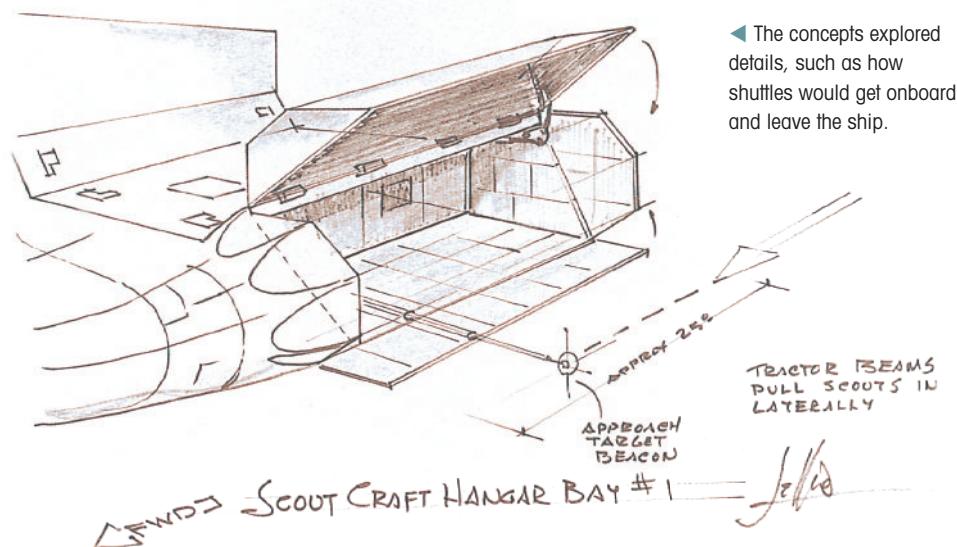 ◀ The concepts explored
details, such as how
shuttles would get onboard
and leave the ship.
APPROX 25°
TRACTOR BEAMS
PULL SCOUTS IN
LATERALLY
APPROACH
TARGET
BEACON
FWD
SCOUT CRAFT HANGAR BAY #1